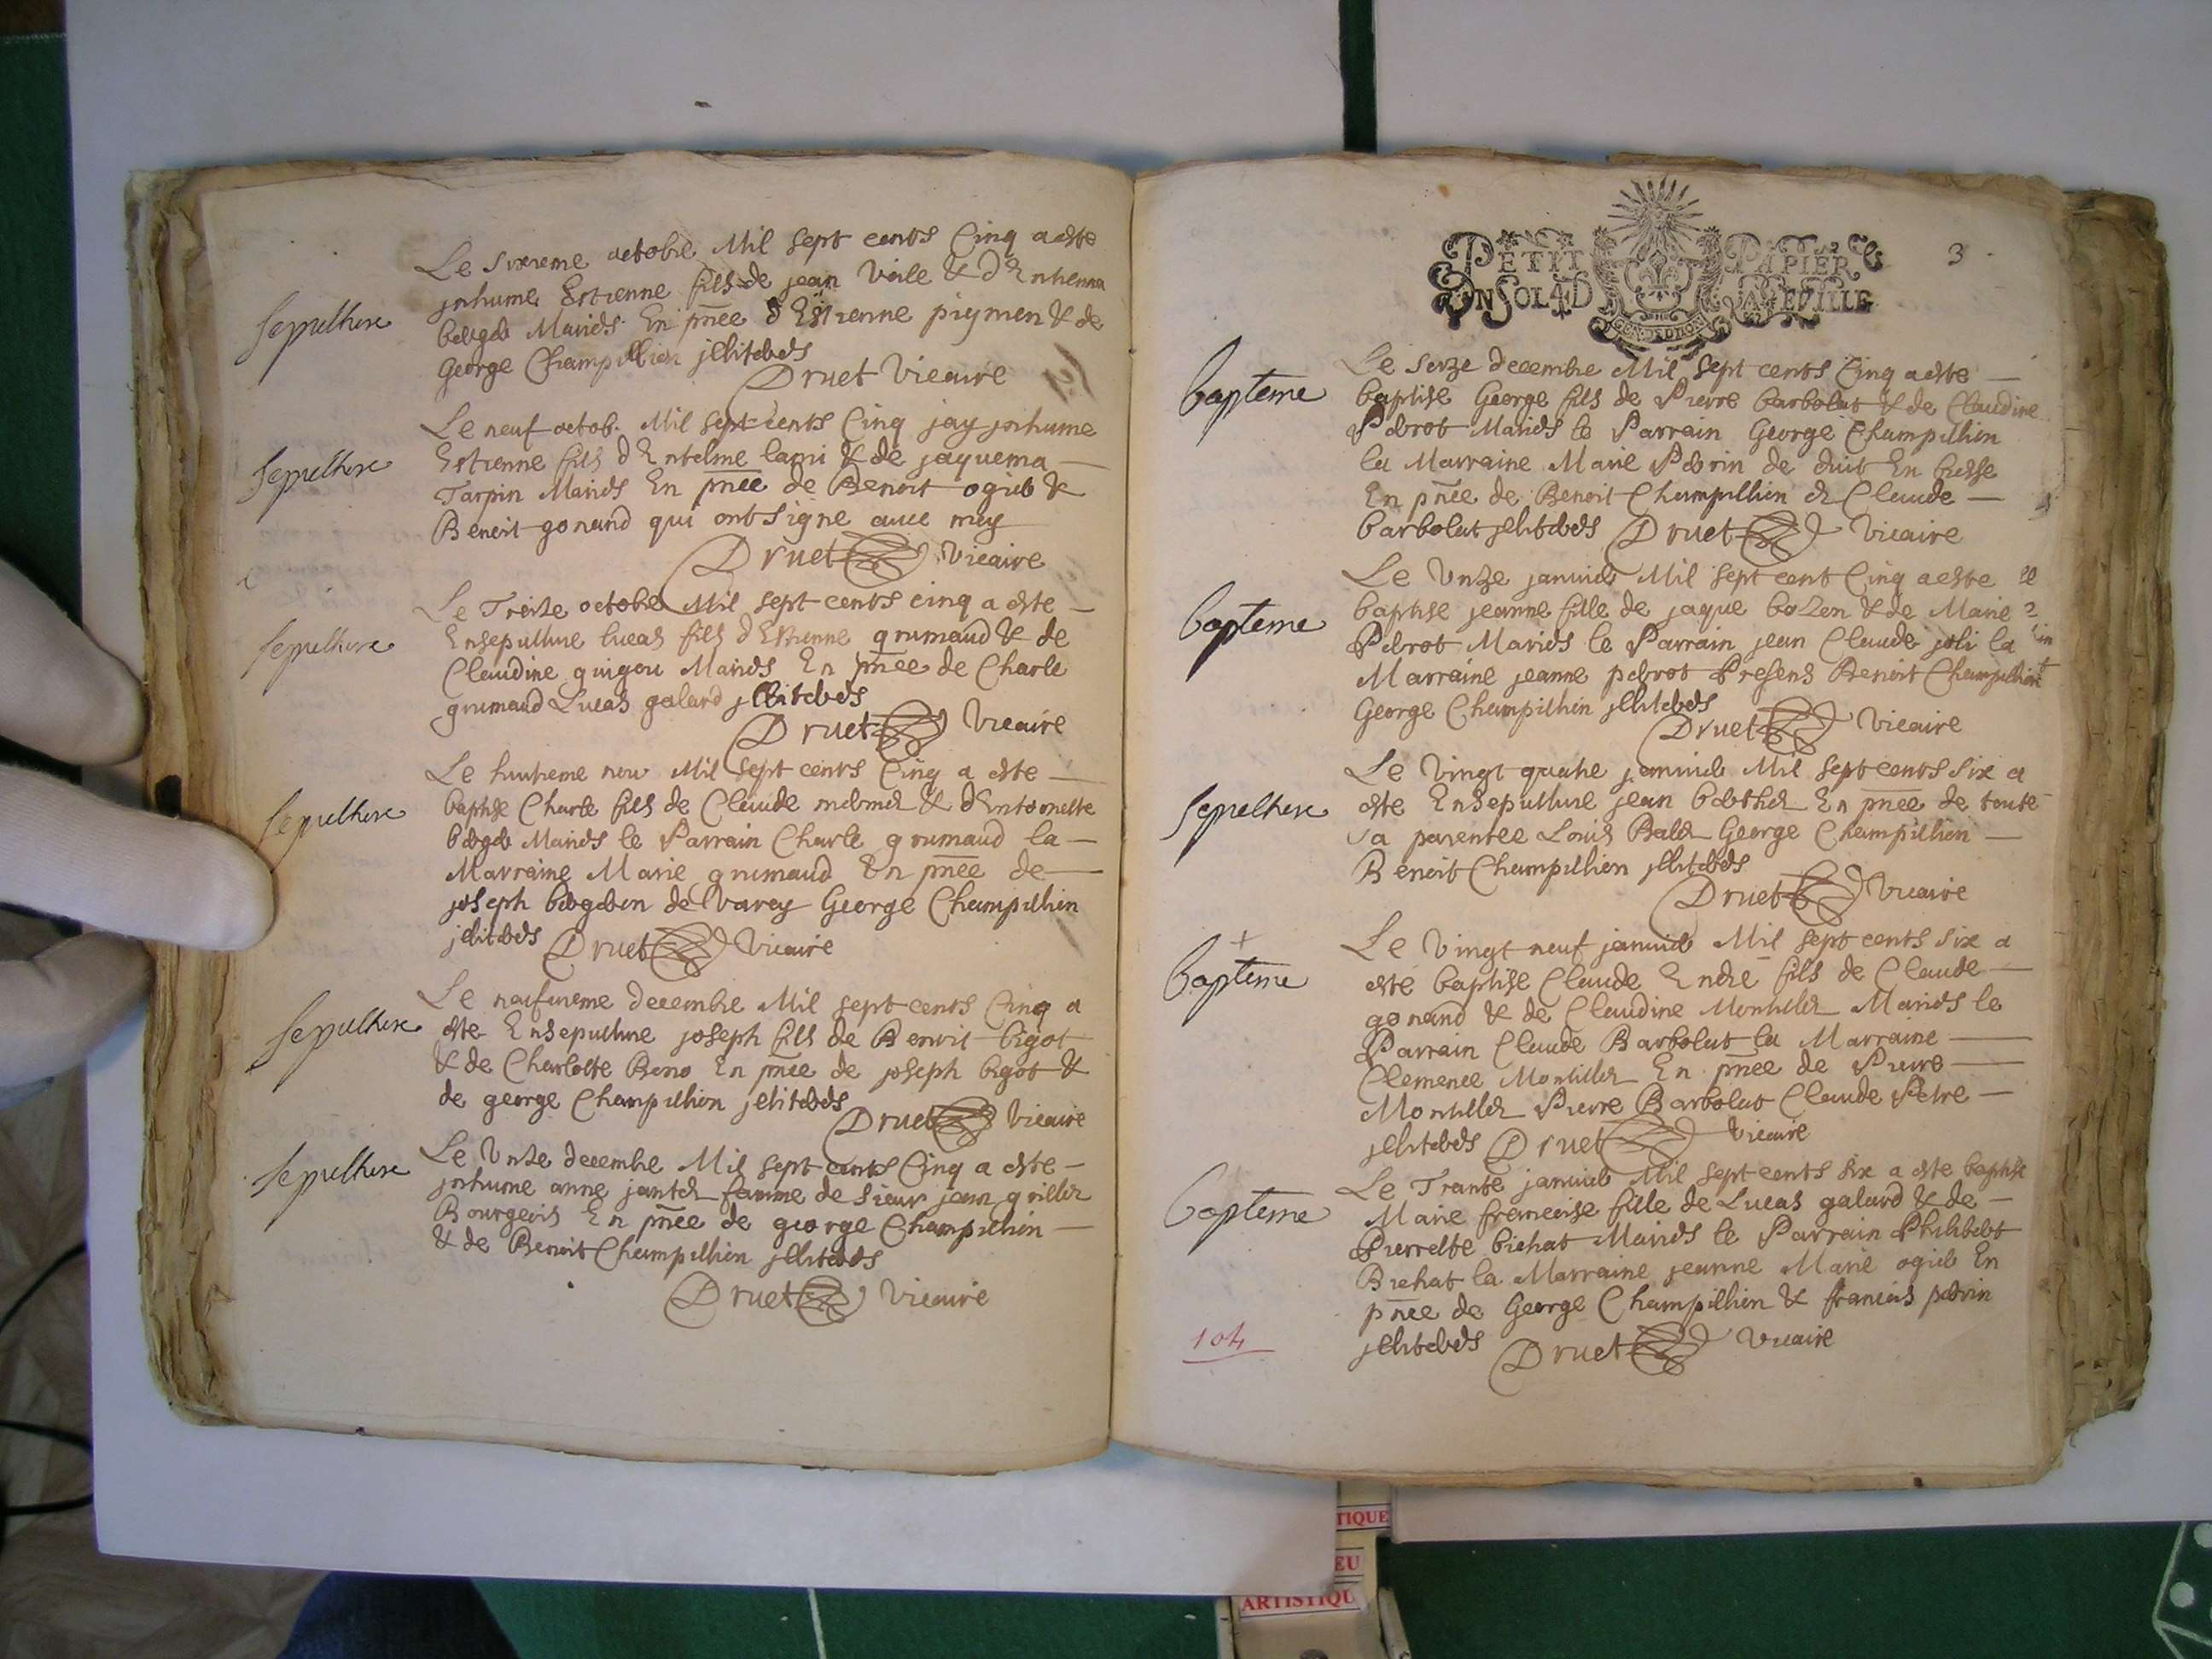 Sepulthure
Le sixieme octobre Mil sept cents Cinq a esté
jnhume Estienne fils de jean Vole & d'Enthenna
berger Mariés En pñce d'Estienne piymen & de
George Champillion jllitérés
Druet Vicaire
Sepulthure
Le neuf octob. Mil sept cents Cinq jay jnhume
Estienne fils d'Entelme lami & de jaquema
Tarpin Mariés En pñce de Benoit ogier &
Benoit gonand qui ont signe avec moy
Druet Vicaire
Sepulthure
Le Treize octobre Mil sept cents cinq a esté
Ensepulture lucas fils d'Estienne grumaud & de
Claudine guigou Mariés En pñce de Charle
grumaud Lucas galard jllitérés
Druet Vicaire
Sepulthure
Le huitieme nov Mil sept cents Cinq a esté
baptise Charle fils de Claude mermet & d'Entoinette
berger Mariés le Parrain Charle grumaud la
Marraine Marie grumaud En pñce de
joseph bergeron de Varey George Champillion
jllitérés Druet Vicaire
Sepulthure
Le neufvieme decembre Mil sept cents Cinq a
esté Ensepulture joseph fils de Benoit bigot
& de Charlotte Beno En pñce de joseph bigot &
de george Champillion jllitérés
Druet Vicaire
Sepulthure
Le Unze decembre Mil sept cents Cinq a esté
jnhume anne jantet famme de sieur jean grillet
Bourgeois En pñce de george Champillion
& de Benoit Champillion jllitérés
Druet Vicaire
3
PETIT PAPIER
UN SOL 4 D LA FEUILLE
GEN DE DIION
bapteme
Le seize decembre Mil sept cents Cinq a esté
baptise George fils de Pierre barbolat & de Claudine
Perrot Mariés le Parrain George Champillion
la Marraine Marie Perrin de druit En bresse
En pñce de Benoit Champillion et Claude
barbolat jllitérés Druet Vicaire
bapteme
Le Unze janvier Mil sept cent Cinq a esté
baptise jeanne fille de jaque bozon & de Marie
Perrot Mariés le Parrain jean Claude joli la
Marraine jeanne perrot Presens Benoit Champillion
George Champillion jllitérés
Druet Vicaire
Sepulthure
Le Vingt quatre janvier Mil sept cents six a
esté Ensepulture jean berthet En pñce de toute
sa parentee Louis Balet George Champillion
Benoit Champillion jllitérés
Druet Vicaire
bapteme
Le Vingt neuf janvier Mil sept cents six a
esté baptise Claude Endré fils de Claude
gonand & de Claudine Montillet Mariés le
Parrain Claude Barbolat la Marraine
Clemence Montillet En pñce de Pierre
Montillet Pierre Barbolat Claude Petre
jllitérés Druet Vicaire
bapteme
Le Trante janvier Mil sept cents six a esté baptise
Marie francoise fille de Lucas galard & de
Pierrette bichat Mariés le Parrain Philibert
Bichat la Marraine jeanne Marie ogier En
pñce de George Champillion & francois perrin
jllitérés Druet Vicaire
104
TIQUE
EU
ARTISTIQU